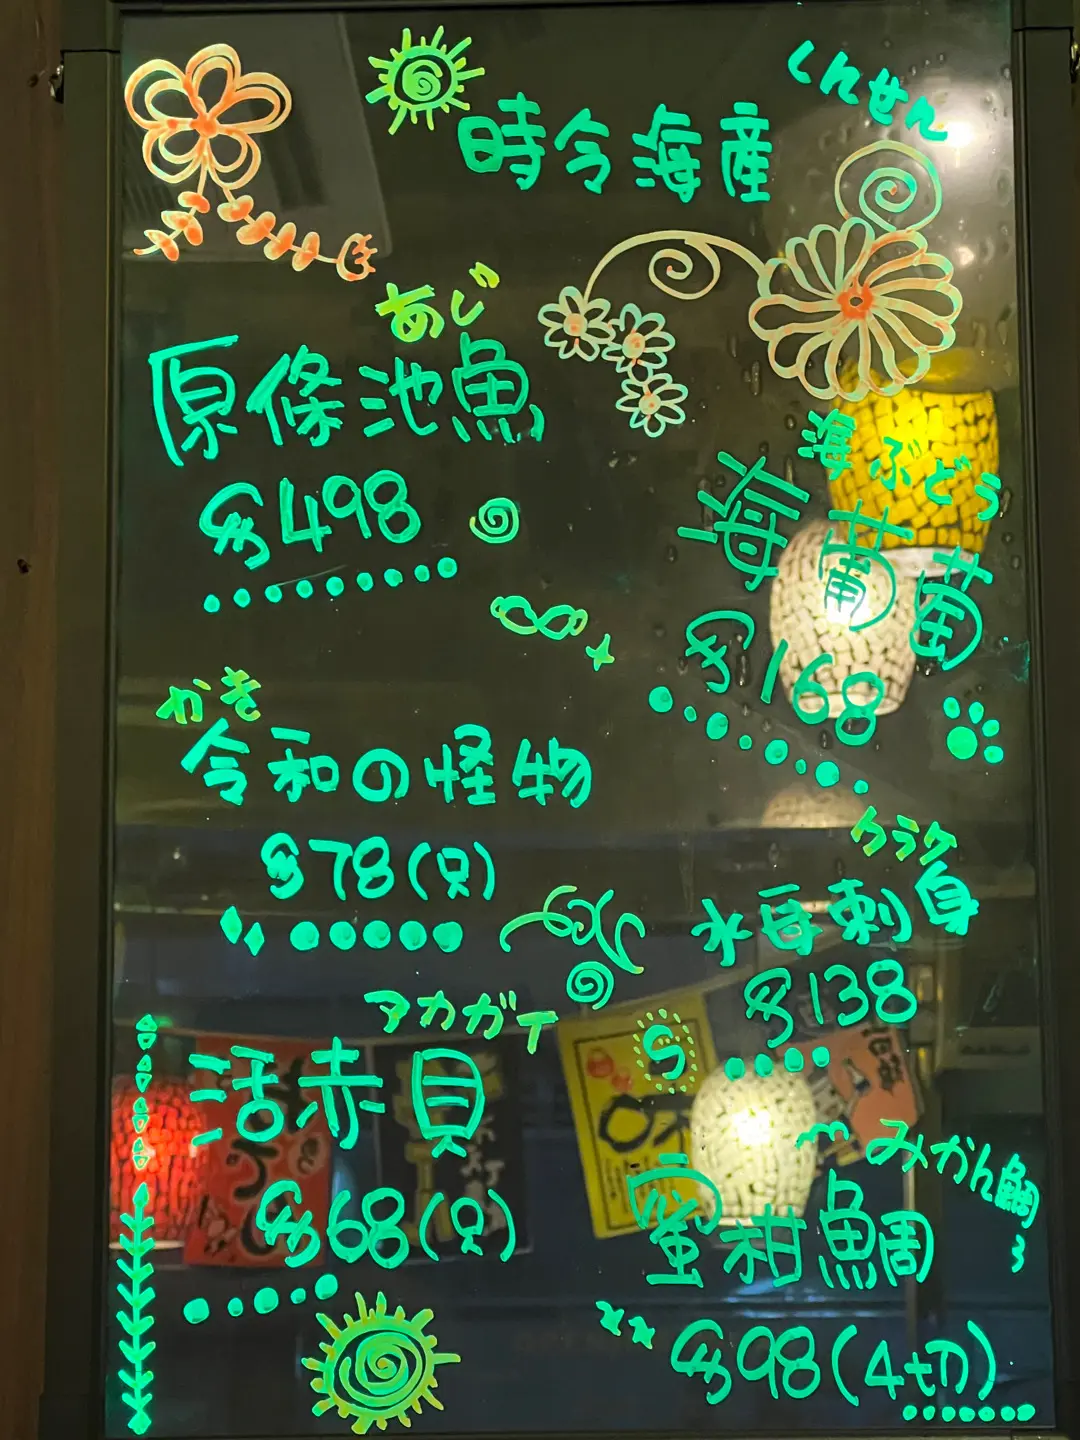 しんせん
時令海産
あじ
原條池魚
$498
海ぶどう
海葡萄
$168
かき
令和の怪物
$78(只)
クラゲ
水母刺身
$138
アカガイ
活赤貝
$68(只)
みかん鯛
蜜柑鯛
$98(4切)